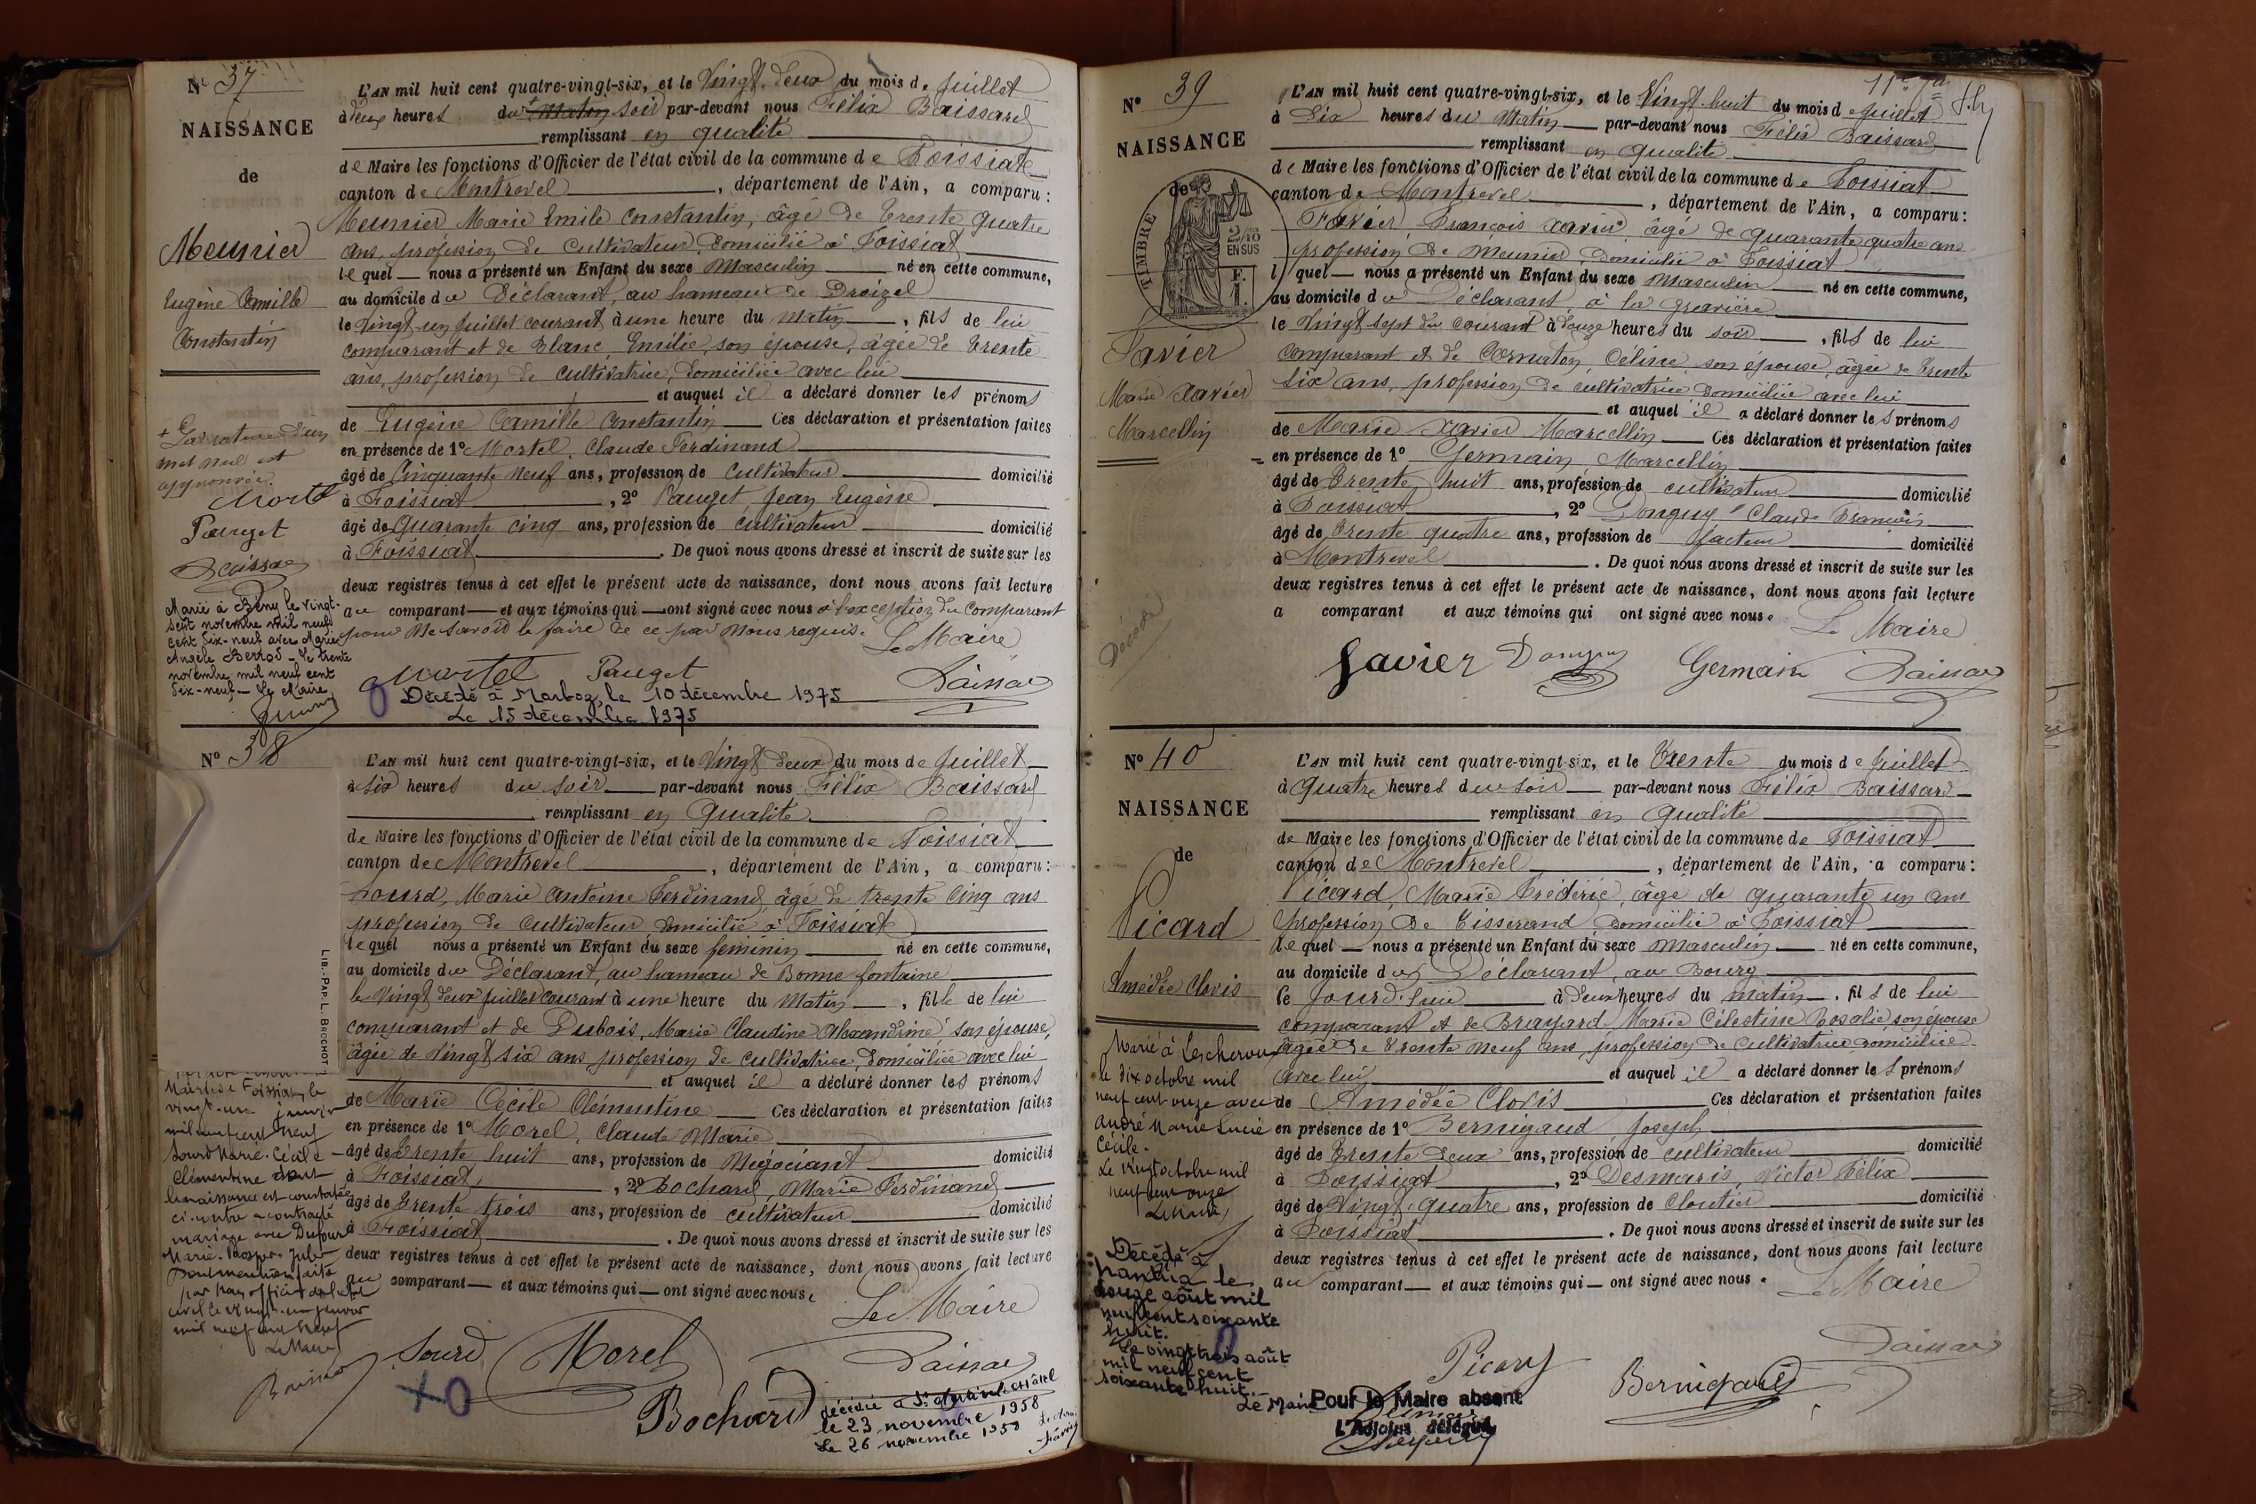 N° 37
NAISSANCE
de
Meunier
Eugène Camille
Constantin
+ La rature d'un
mot nul est
approuvée.
Pauget
Marié à Bény le vingt-
sept novembre mil neuf
cent dix-neuf avec Marie
Angèle - Le trente
novembre mil neuf cent
dix-neuf - Le Maire
L'AN mil huit cent quatre-vingt-six, et le Vingt deux du mois de Juillet
à deux heures du + Matin soir par-devant nous Félix Baissard
remplissant en qualité
de Maire les fonctions d'Officier de l'état civil de la commune de Foissiat
canton de Montrevel, département de l'Ain, a comparu :
Meunier, Marie Emile Constantin, âgé de trente quatre
ans, profession de cultivateur, domicilié à Foissiat
lequel — nous a présenté un Enfant du sexe Masculin né en cette commune,
au domicile du Déclarant, au hameau de Droizel
le Vingt un Juillet courant à une heure du Matin, fils de lui
comparant et de Blanc, Emilie, son épouse, âgée de trente
ans, profession de cultivatrice, domiciliée avec lui
et auquel il a déclaré donner les prénoms
de Eugène Camille Constantin — Ces déclaration et présentation faites
en présence de 1° Martel, Claude Ferdinand
âgé de Cinquante neuf ans, profession de cultivateur domicilié
à Foissiat, 2° Pauget, Jean Eugène
âgé de quarante cinq ans, profession de cultivateur domicilié
à Foissiat. De quoi nous avons dressé et inscrit de suite sur les
deux registres tenus à cet effet le présent acte de naissance, dont nous avons fait lecture
au comparant — et aux témoins qui — ont signé avec nous à l'exception du comparant
pour ne savoir le faire de ce par Nous requis. Le Maire
Martel Pauget
Décédé à Marboz, le 10 décembre 1975
Le 15 décembre 1975
N° 38
LIB.-PAP. L. BROCHOT
Mairie de Foissiat, le
vingt-un janvier
mil neuf cent neuf
Sourd Marie Cécile
Clémentine dont
la naissance est constatée
ci-contre a contracté
mariage avec Dufour
Marie Prosper Jules
Dont mention faite
par nous officier de l'état
civil le vingt-un janvier
mil neuf cent neuf
Le Maire
L'AN mil huit cent quatre-vingt-six, et le Vingt deux du mois de Juillet
à six heures du soir par-devant nous Félix Baissard
remplissant en qualité
de Maire les fonctions d'Officier de l'état civil de la commune de Foissiat
canton de Montrevel, département de l'Ain, a comparu :
Sourd, Marie Antoine Ferdinand, âgé de trente cinq ans
profession de cultivateur, domicilié à Foissiat
lequel nous a présenté un Enfant du sexe féminin né en cette commune,
au domicile du Déclarant, au hameau de Bonne fontaine
le Vingt deux Juillet courant à une heure du Matin, fille de lui
comparant et de Dubois, Marie Claudine Alexandrine, son épouse,
âgée de vingt six ans, profession de cultivatrice, domiciliée avec lui
et auquel il a déclaré donner les prénoms
de Marie Cécile Clémentine — Ces déclaration et présentation faites
en présence de 1° Morel, Claude Marie
âgé de trente huit ans, profession de Négociant domicilié
à Foissiat, 2° Bochard, Marie Ferdinand
âgé de trente trois ans, profession de cultivateur domicilié
à Foissiat. De quoi nous avons dressé et inscrit de suite sur les
deux registres tenus à cet effet le présent acte de naissance, dont nous avons fait lecture
au comparant — et aux témoins qui — ont signé avec nous.
Le Maire
Sourd Morel
Bochard
décédée à St
le 23 novembre 1958
Le 26 novembre 1958
N° 39
NAISSANCE
de
TIMBRE
2/10 EN SUS
Favier
Marie Xavier
Marcellin
Décédé
L'AN mil huit cent quatre-vingt-six, et le Vingt huit du mois de Juillet
à dix heures du Matin — par-devant nous Félix Baissard
remplissant en qualité
de Maire les fonctions d'Officier de l'état civil de la commune de Foissiat
canton de Montrevel, département de l'Ain, a comparu :
Favier, François Xavier, âgé de quarante quatre ans
profession de Meunier, domicilié à Foissiat
l quel — nous a présenté un Enfant du sexe Masculin né en cette commune,
au domicile du Déclarant, à la gravière
le Vingt sept du courant à douze heures du soir, fils de lui
comparant et de Cornaton, Céline, son épouse, âgée de trente
six ans, profession de cultivatrice domiciliée avec lui
et auquel il a déclaré donner les prénoms
de Marie Xavier Marcellin — Ces déclaration et présentation faites
en présence de 1° Germain Marcellin
âgé de trente huit ans, profession de cultivateur domicilié
à Foissiat, 2° Donguy Claude François
âgé de trente quatre ans, profession de facteur domicilié
à Montrevel. De quoi nous avons dressé et inscrit de suite sur les
deux registres tenus à cet effet le présent acte de naissance, dont nous avons fait lecture
a comparant et aux témoins qui ont signé avec nous.
Le Maire
Favier Donguy Germain
N° 40
NAISSANCE
de
Picard
Amédée Clovis
Marié à Lescheroux
le dix octobre mil
neuf cent onze avec
André Marie Lucie
Cécile.
Le vingt octobre mil
neuf cent onze
Le Maire,
Décédé à
Nantua le
douze août mil
neuf cent soixante
huit.
Le vingt trois août
mil neuf cent
soixante huit.
Le Maire
L'AN mil huit cent quatre-vingt-six, et le Trente du mois de Juillet
à quatre heures du soir — par-devant nous Félix Baissard
remplissant en qualité
de Maire les fonctions d'Officier de l'état civil de la commune de Foissiat
canton de Montrevel, département de l'Ain, a comparu :
Picard, Marie Frédéric, âgé de quarante un ans
profession de tisserand domicilié à Foissiat
lequel — nous a présenté un Enfant du sexe Masculin — né en cette commune,
au domicile du Déclarant, au Bourg
le jourd'hui à deux heures du matin, fils de lui
comparant et de Brayard Marie Célestine Rosalie son épouse
âgée de trente neuf ans, profession de cultivatrice domiciliée
avec lui et auquel il a déclaré donner les prénoms
de Amédée Clovis Ces déclaration et présentation faites
en présence de 1° Bernigaud Joseph
âgé de trente deux ans, profession de cultivateur domicilié
à Foissiat, 2° Desmaris, Victor Félix
âgé de vingt quatre ans, profession de cloutier domicilié
à Foissiat. De quoi nous avons dressé et inscrit de suite sur les
deux registres tenus à cet effet le présent acte de naissance, dont nous avons fait lecture
au comparant — et aux témoins qui — ont signé avec nous.
Le Maire
Picard Bernigaud
Pour le Maire absent
L'Adjoint délégué,